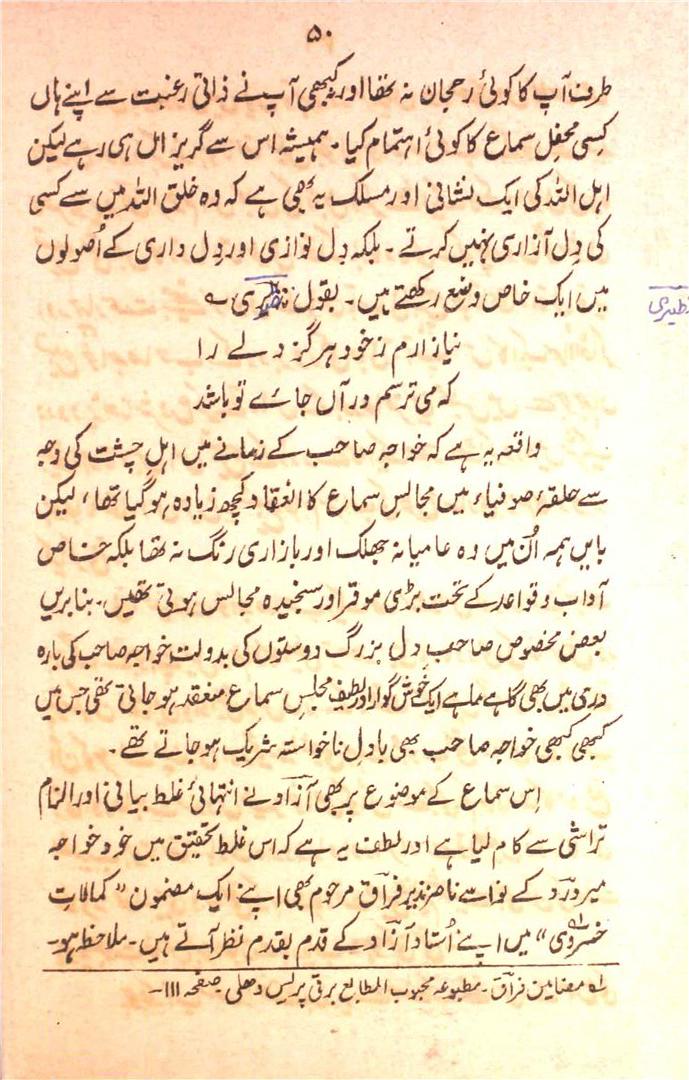 ۵۰
طرف آپ کا کوئی رحجان نہ تھا اور کبھی آپ نے ذاتی رغبت سے اپنے ہاں
کسی محفلِ سماع کا کوئی اہتمام کیا۔ ہمیشہ اس سے گریزاں ہی رہے لیکن
اہل اللہ کی ایک نشانی اور مسلک یہ بھی ہے کہ وہ خلق اللہ میں سے کسی
کی دِل آزاری نہیں کرتے۔ بلکہ دِل نوازی اور دِل داری کے اُصولوں
میں ایک خاص وضع رکھتے ہیں۔ بقول نظیری ؎
نظیری
نیازارم ز خود ہرگز دلے را
کہ می ترسم در آں جائے تو باشد
واقعہ یہ ہے کہ خواجہ صاحب کے زمانے میں اہلِ چشت کی وجہ
سے حلقۂ صوفیاء میں مجالسِ سماع کا انعقاد کچھ زیادہ ہو گیا تھا، لیکن
بایں ہمہ اُن میں وہ عامیانہ جھلک اور بازاری رنگ نہ تھا بلکہ خاص
آداب و قواعد کے تحت بڑی موقر اور سنجیدہ مجالس ہوتی تھیں۔ بنا بریں
بعض مخصوص صاحبِ دل بزرگ دوستوں کی بدولت خواجہ صاحب کی بارہ
دری میں بھی گاہے ماہے ایک خوش گوار اور لطیف مجلسِ سماع منعقد ہو جاتی تھی جس میں
کبھی کبھی خواجہ صاحب بھی بادلِ ناخواستہ شریک ہو جاتے تھے۔
اِس سماع کے موضوع پر بھی آزاد نے انتہائی غلط بیانی اور الزام
تراشی سے کام لیا ہے اور لطف یہ ہے کہ اس غلط تحقیق میں خود خواجہ
میر درد کے نواسے ناصر نذیر فراق مرحوم بھی اپنے ایک مضمون "کمالاتِ
خسروی"؂۱ میں اپنے اُستاد آزاد کے قدم بقدم نظر آتے ہیں۔ ملاحظہ ہو۔
؂۱ مضامین فراق۔ مطبوعہ محبوب المطابع برقی پریس دھلی۔ صفحہ ۱۱۱۔